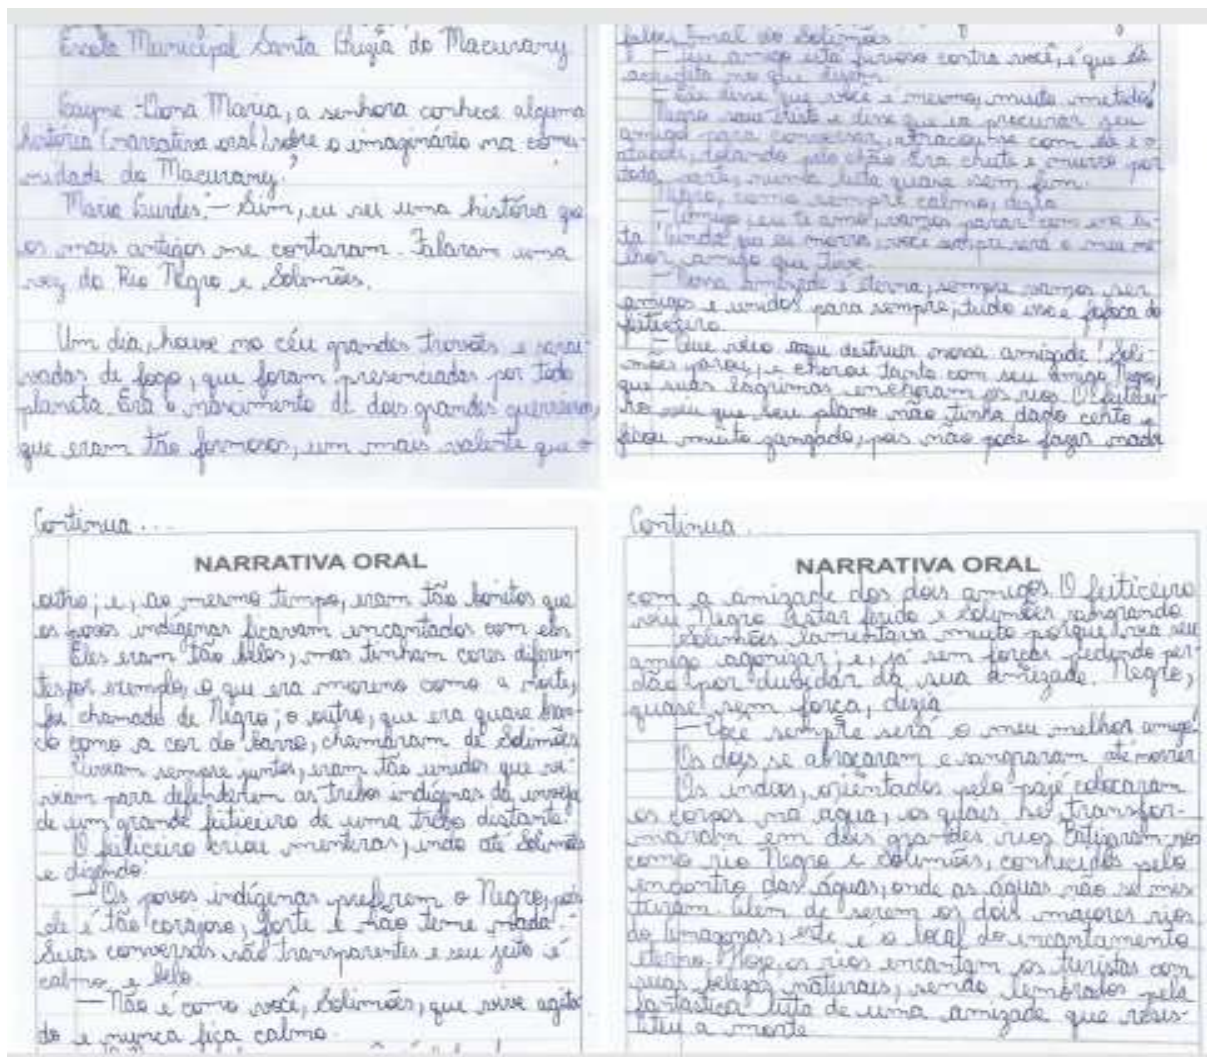 Escola Municipal Santa Luzia do Macurany
Gayne - Dona Maria, a senhora conhece alguma
história (narrativa oral) sobre o imaginário na comu-
nidade do Macurany?
Maria Lurdes. - Sim, eu sei uma história que
os mais antigos me contaram. Falaram uma
vez do Rio Negro e Solimões.
Um dia, houve no céu grandes trovões e sarai-
vadas de fogo, que foram presenciadas por todo
planeta. Era o nascimento de dois grandes guerreiros,
que eram tão formosos, um mais valente que o
Continua...
NARRATIVA ORAL
outro; e, ao mesmo tempo, eram tão bonitos que
os povos indígenas ficavam encantados com eles
Eles eram tão belos, mas tinham cores diferen-
tes por exemplo, o que era moreno como a noite,
foi chamado de Negro; o outro, que era quase bran-
co como a cor do barro, chamaram de Solimões
Viviam sempre juntos, eram tão unidos que vi-
viam para defenderem as tribos indígenas da inveja
de um grande feiticeiro de uma tribo distante.
O feiticeiro criou mentiras, indo até Solimões
e dizendo:
— Os povos indígenas preferem o Negro, pois
ele é tão corajoso, forte e não teme nada.
Suas conversas são transparentes e seu jeito é
calmo e belo.
— Não é como você, Solimões, que vive agita-
do e nunca fica calmo.
do Solimões.
— Seu amigo está furioso contra você, é que só
acredita no que dizem.
— Ele disse que você é mesmo muito metido!
Negro saiu triste e disse que ia procurar seu
amigo para conversar, atracou-se com ele e o
rolando pelo chão. Era chute e murro por
toda parte, numa luta quase sem fim.
Negro, como sempre calmo, dizia:
— Amigo, eu te amo, vamos parar com essa lu-
ta! Ainda que eu morra, você sempre será o meu me-
lhor amigo que tive.
— Nossa amizade é eterna, sempre vamos ser
amigos e unidos para sempre, tudo isso é fofoca do
feiticeiro
— Que veio aqui destruir nossa amizade! Soli-
mões parou, e chorou tanto com seu amigo Negro,
que suas lágrimas encheram os rios. O feiticei-
ro viu que seu plano não tinha dado certo e
ficou muito zangado, pois não pode fazer nada
Continua...
NARRATIVA ORAL
com a amizade dos dois amigos. O feiticeiro
viu Negro estar ferido e Solimões sangrando
Solimões lamentava muito porque via seu
amigo agonizar; e, já sem forças pedindo per-
dão por duvidar da sua amizade. Negro,
quase sem força, dizia
— Você sempre será o meu melhor amigo.
Os dois se abraçaram e sangraram até morrer
Os índios, orientados pelo pajé colocaram
os corpos na água, os quais se transfor-
maram em dois grandes rios Batizaram-nos
como rio Negro e Solimões, conhecidos pelo
encontro das águas, onde as águas não se mis-
turam. Além de serem os dois maiores rios
do Amazonas, este é o local do encantamento
eterno. Hoje, os rios encantam os turistas com
suas belezas naturais, sendo lembrados pela
fantástica luta de uma amizade que resis-
titu a morte